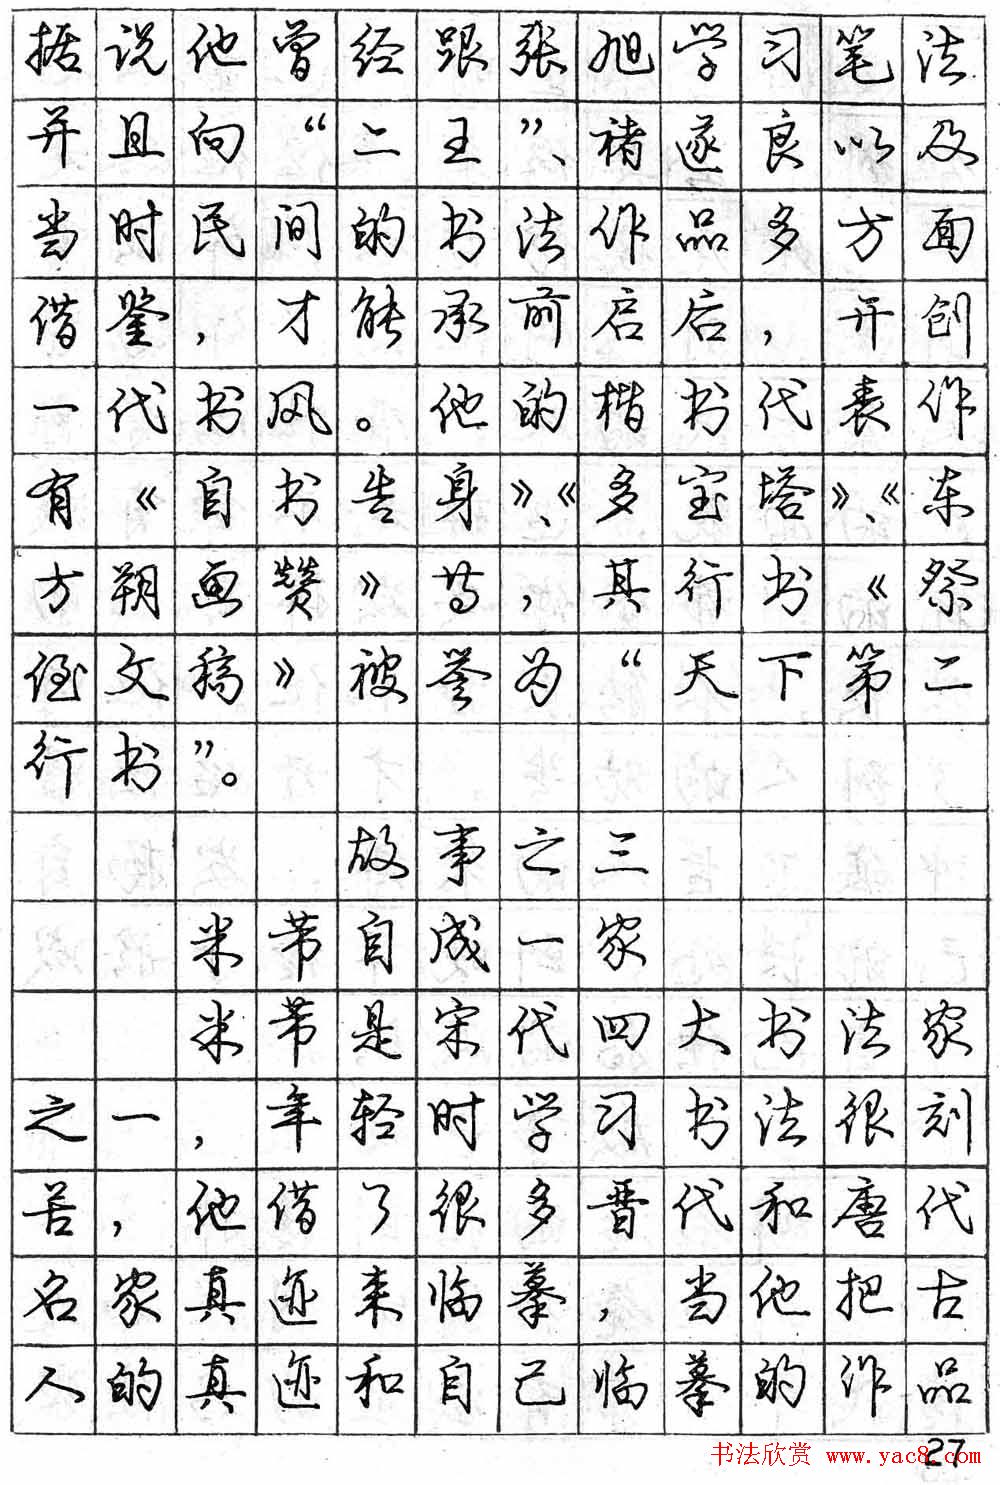 据说他曾经跟张旭学习笔法
并且向“二王”、褚遂良以及
当时民间的书法作品多方面
借鉴，才能承前启后，开创
一代书风。他的楷书代表作
有《自书告身》、《多宝塔》、《东
方朔画赞》等，其行书《祭
侄文稿》被誉为“天下第二
行书”。
故事之三
米芾自成一家
米芾是宋代四大书法家
之一，年轻时学习书法很刻
苦，他借了很多晋代和唐代
名家真迹来临摹，当他把古
人的真迹和自己临摹的作品
书法欣赏 www.yac8.com
27